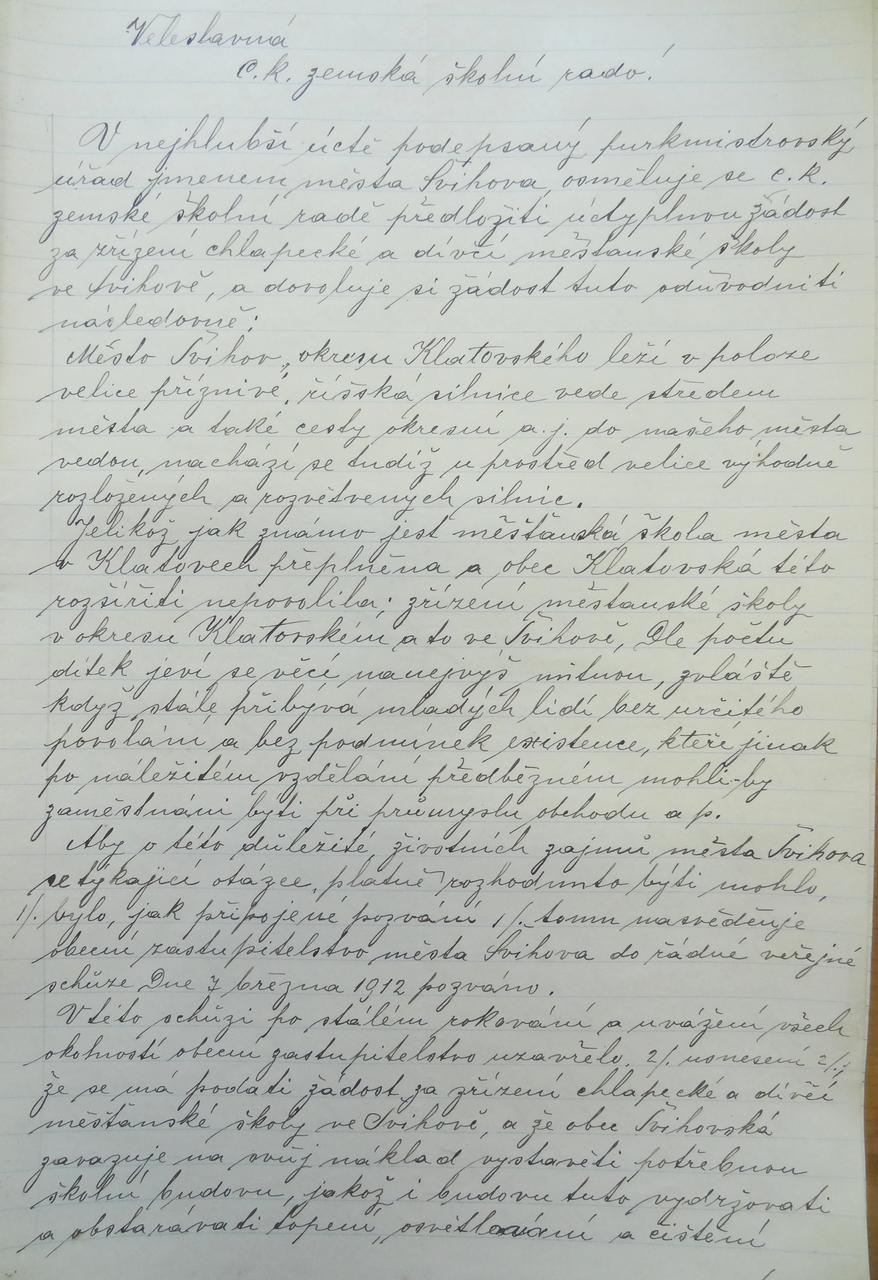 Veleslavná
c.k. zemská školní rado!
V nejhlubší úctě podepsaný purkmistrovský
úřad jmenem města Švihova, osměluje se c.k.
zemské školní radě předložiti úctyplnou žádost
za zřízení chlapecké a dívčí měšťanské školy
ve Švihově, a dovoluje si žádost tuto odůvodniti
následovně:
Město Švihov, okresu Klatovského leží v poloze
velice příznivé, říšská silnice vede středem
města a také cesty okresní a.j. do našeho města
vedou, nachází se tudíž u prostřed velice výhodně
rozložených a rozvětvených silnic.
Jelikož jak známo jest měšťanská škola města
v Klatovech přeplněna a obec Klatovská této
rozšířiti nepovolila; zřízení měšťanské školy
v okresu Klatovském a to ve Švihově, Dle počtu
dítek jeví se věcí nanejvýš nutnou, zvláště
když stále přibývá mladých lidí bez určitého
povolání a bez podmínek existence, kteří jinak
po náležitém vzdělání předběžném mohli-by
zaměstnáni býti při průmyslu obchodu a p.
Aby o této důležité životních zajmů města Švihova
se týkající otázce, platně rozhodnuto býti mohlo,
1/. bylo, jak připojené pozvání 1/. tomu nasvědčuje
obecní zastupitelstvo města Švihova do řádné veřejné
schůze Dne 7 března 1912 pozváno.
V této schůzi po stálém rokování a uvážení všech
okolností obecní zastupitelstvo uzavřelo, 2/. usnesení 2/.,
že se má podati žádost za zřízení chlapecké a dívčí
měšťanské školy ve Švihově, a že obec Švihovská
zavazuje na svůj náklad vystavěti potřebnou
školní budovu, jakož i budovu tuto vydržovati
a obstarávati topení, osvětlování a čištění